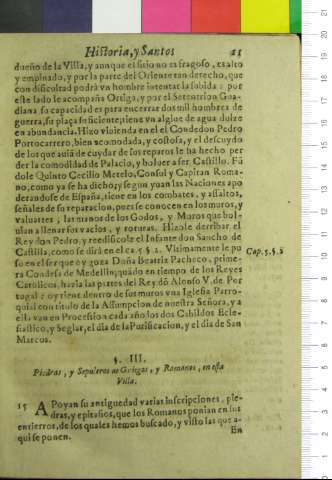 Historia, y Santos 23
dueño de la Villa, y aunque el sitio no es fragoso, es alto
y empinado, y por la parte del Oriente tan derecho, que
con dificultad podrà vn hombre intentar la subida: por
este lado le acompaña Ortiga, y por el Setentrion Gua-
diana, su capacidad es para encerrar dos mil hombres de
guerra, su plaça suficiente; tiene vn algibe de agua dulze
en abundancia. Hizo vivienda en el el Conde don Pedro
Portocarrero, bien acomodada, y costosa, y el descuydo
de los que auiã de cuydar de sus reparos le ha hecho per
der la comodidad de Palacio, y boluer a ser Castillo. Fũ
dole Quinto Cecilio Metelo, Consul y Capitan Roma-
no, como ya se ha dicho; y segun yuan las Naciones apo
derandose de España, tiene en los combates, y assaltos,
señales de su reparacion, pues se conocen en los muros, y
valuartes, las manos de los Godos, y Moros que bol-
uian a llenar sus vacios, y roturas. Hizole derribar el
Rey don Pedro, y reedificole el Infante don Sancho de
Castilla, como se dirà en el ca. 5. §. 2. Vltimamente le pu
so en el ser que oy goza Doña Beatriz Pacheco, prime-
ra Condesa de Medellin, quãdo en tiempo de los Reyes
Catolicos, hazia las partes del Rey dõ Alonso V. de Por
tugal: oy tiene dentro de sus muros vna Iglesia Parro-
quial con titulo de la Assumpcion de nuestra Señora, y a
ella van en Procession cada año los dos Cabildos Ecle-
siastico, y Seglar, el dia de la Purificacion, y el dia de San
Marcos.
Cap. 5. §. 2
§. III.
Piedras, y Sepulcros de Griegos, y Romanos, en esta
Villa.
15 APoyan su antiguedad varias inscripciones, pie-
dras, y epitafios, que los Romanos ponian en sus
entierros, de los quales hemos buscado, y visto las que a-
qui se ponen.
En